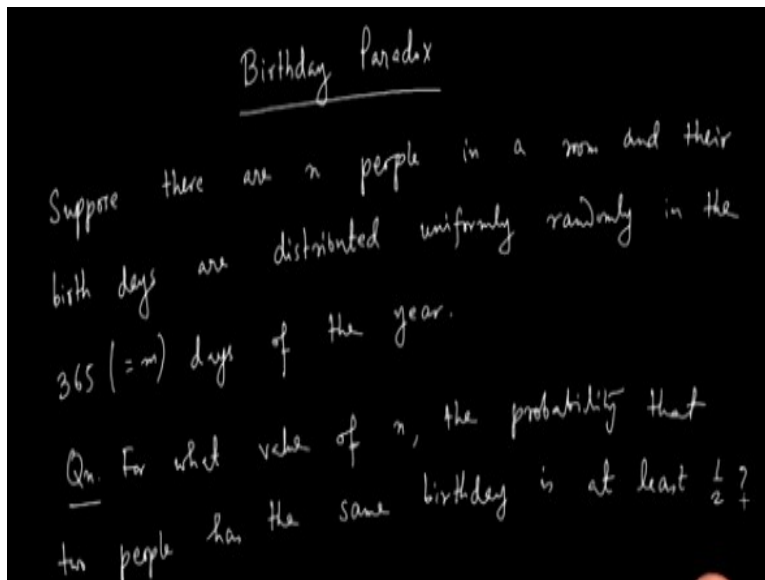 Birthday Paradox
Suppose there are n people in a room and their
birth days are distributed uniformly randomly in the
365 (= m) days of the year.
Qn. For what value of n, the probability that
two people has the same birthday is at least 1/2?